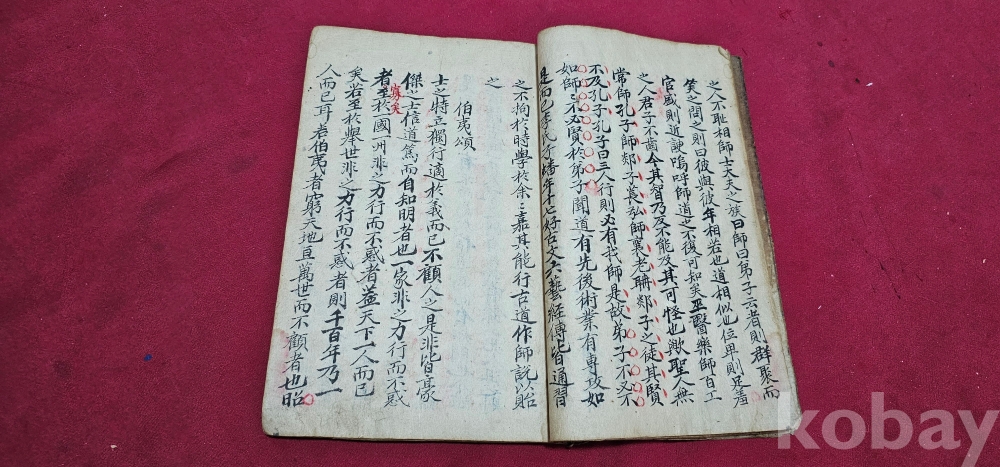 之人不耻相師士大夫之族曰師曰弟子云者則群聚而
笑之問之則曰彼與彼年相若也道相似也位卑則足羞
官盛則近諛嗚呼師道之不復可知矣巫醫藥師百工
之人君子不齒今其智乃反不能及其可怪也歟聖人無
常師孔子師郯子萇弘師襄老聃郯子之徒其賢
不及孔子孔子曰三人行則必有我師是故弟子不必不
如師師不必賢於弟子聞道有先後術業有專攻如
是而已李氏子蟠年十七好古文六藝經傳皆通習
之不拘於時學於余余嘉其能行古道作師說以貽
之
伯夷頌
士之特立獨行適於義而已不顧人之是非皆豪
傑之士信道篤而自知明者也一家非之力行而不惑
者寡矣至於一國一州非之力行而不惑者蓋天下一人而已
矣若至於舉世非之力行而不惑者則千百年乃一
人而已耳若伯夷者窮天地亘萬世而不顧者也昭
kobay